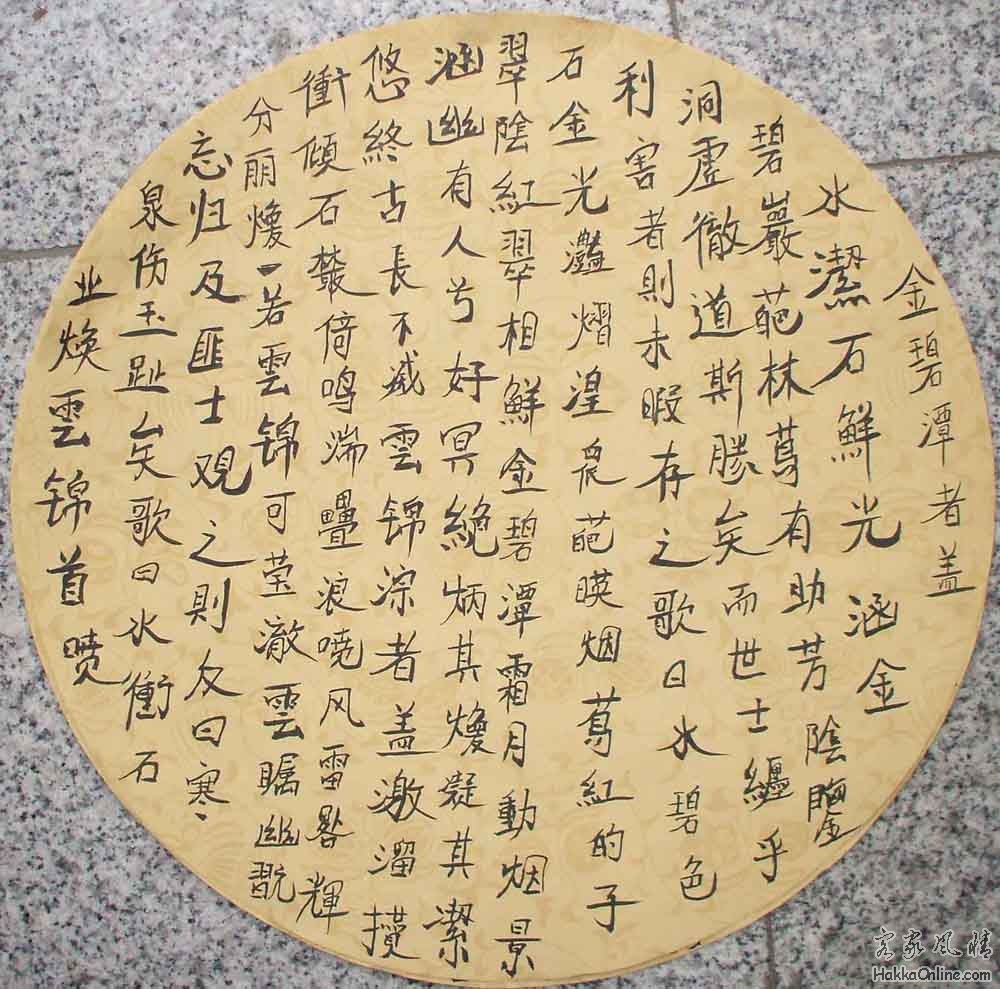 金碧潭者盖
水潔石鮮光涵金
碧巖葩林蔦有助芳陰鑒
洞虛徹道斯勝矣而世士纏乎
利害者則未暇存之歌曰水碧色
石金光灩熠湟泉葩暎烟蔦紅的子
翠陰紅翠相鮮金碧潭霜月動烟景
涵幽有人兮好冥絶炳其煥凝其潔
悠終古長不滅雲锦淙者盖激溜攢
衝傾石叢倚鸣湍疊浪风雷輝
分丽煥一若雲锦可莹澈雲瞩幽翫
忘归及匪士观之則反曰寒
泉伤玉趾矣歌曰水衝石
业焕雲锦首喷
客家风情
HakkaOnline.com